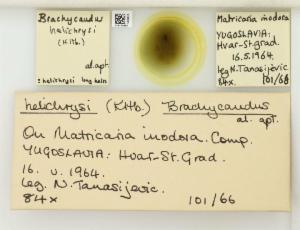 Brachycaudus
helichrysi
(Kltb.)
al. apt.
± helichrysi long hairs
Matricaria inodora
YUGOSLAVIA:
Hvar-St.grad.
16.5.1964.
leg N. Tanasijević
84x 101/66
helichrysi (Kltb.) Brachycaudus
al. apt.
On Matricaria inodora. Comp.
YUGOSLAVIA: HVAR-St. Grad.
16. v. 1964.
Leg. N. Tanasijevic.
84x 101/66